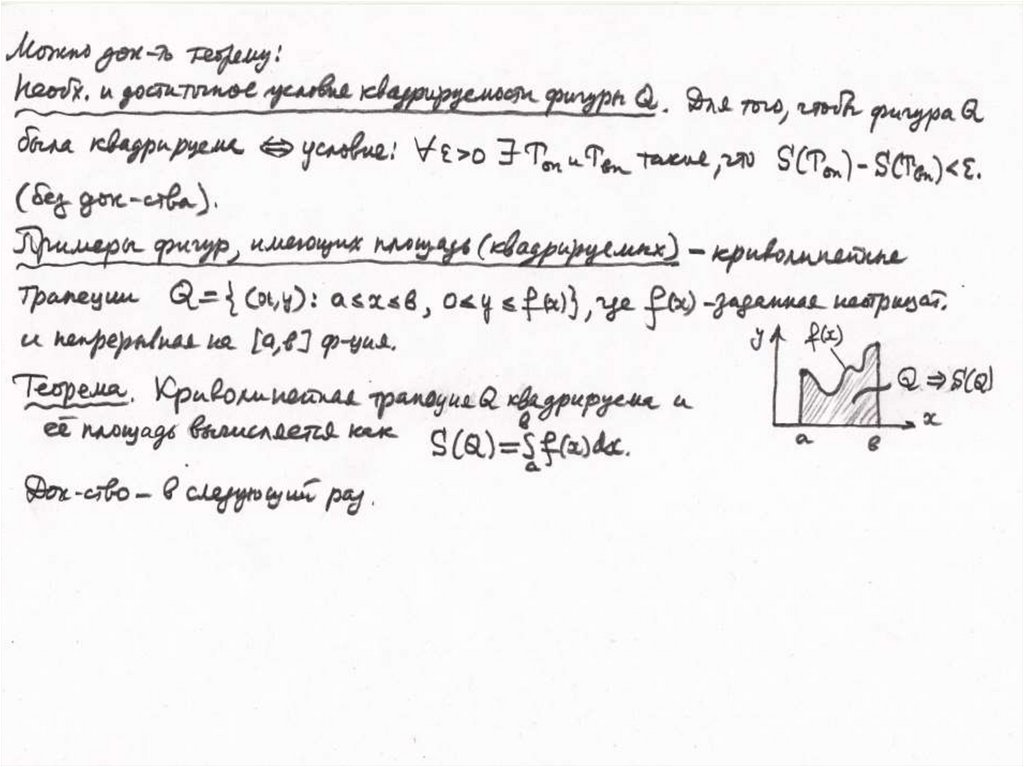 Можно док-ть теорему:
Необх. и достаточное условие квадрируемости фигуры Q. Для того, чтобы фигура Q
была квадрируема ⇔ условие: ∀ε>0 ∃ Tоп и Tвп такие, что S(Tоп)-S(Tвп)<ε.
(без док-ства).
Примеры фигур, имеющих площадь (квадрируемых) – криволинейные
трапеции Q={(x,y): a≤x≤b, 0≤y≤f(x)}, где f(x)-заданная неотрицат.
и непрерывная на [a,b] ф-ция.
y f(x)
Q ⇒ S(Q)
x
a b
Теорема. Криволинейная трапеция Q квадрируема и
её площадь вычисляется как S(Q)=∫ₐᵇ f(x)dx.
Док-ство – в следующий раз.